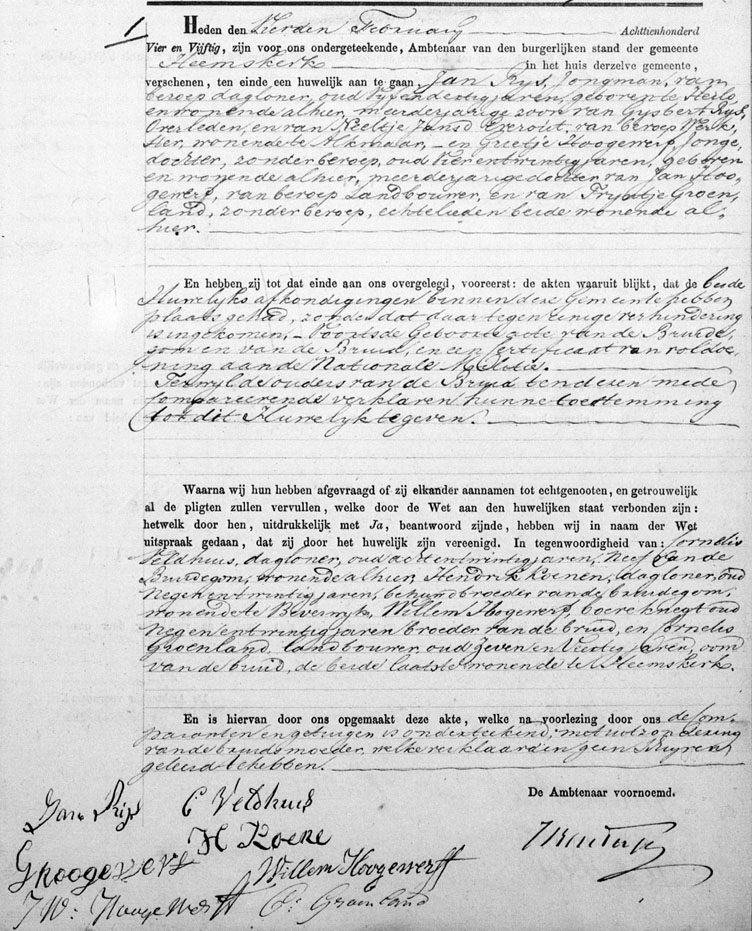 1
Heden den Vierden February Achttienhonderd
Vier en Vijftig, zijn voor ons ondergeteekende, Ambtenaar van den burgerlijken stand der gemeente
Heemskerk in het huis derzelve gemeente,
verschenen, ten einde een huwelijk aan te gaan, Jan Rijs, Jongman, van
beroep dagloner, oud Vyfendertig jaren, geboren te Heilo
en wonende alhier, meerderjarige zoon van Gysbert Rijs,
Overleden, en van Neeltje Jansd van beroep Werk
ster, wonende te Alkmaar, – en Grietje Hoogewerf, Jonge
dochter, zonder beroep, oud vier en twintig jaren, geboren
en wonende alhier, meerderjarige dochter van Jan Hoo-
gewerf, van beroep Landbouwer, en van Tryntje Groen,
land, zonder beroep, echtelieden beide wonende al-
hier.
En hebben zij tot dat einde aan ons overgelegd, vooreerst: de akten waaruit blijkt, dat de beide
Huwelijks afkondigingen binnen deze Gemeente hebben
plaats gehad, zonder dat daar tegen eenige verhindering
is ingekomen, – Voorts de Geboorte acte van de Bruide,
gom en van de Bruid, en een Certificaat van voldoe-
ning aan de Nationale Militie.
Terwyl de ouders van de Bruid ten dezen mede
Comparerende verklaren hunne toestemming
tot dit Huwelyk te geven.
Waarna wij hun hebben afgevraagd of zij elkander aannamen tot echtgenooten, en getrouwelijk
al de pligten zullen vervullen, welke door de Wet aan den huwelijken staat verbonden zijn:
hetwelk door hen, uitdrukkelijk met Ja, beantwoord zijnde, hebben wij in naam der Wet
uitspraak gedaan, dat zij door het huwelijk zijn vereenigd. In tegenwoordigheid van: Cornelis
Veldhuis, dagloner, oud acht en twintig jaren, Neef van de
Bruidegom, wonende alhier, Hendrik Koenen, dagloner, oud
Negen en twintig jaren, behuwdbroeder van de bruidegom,
wonende te Beverwyk, Willem Hogewerf, boereknegt oud
Negen en twintig jaren broeder van de bruid, en Cornelis
Groenland, landbouwer, oud zeven en Veertig jaren, oom
van de bruid, de beide laatste wonende te Heemskerk.
En is hiervan door ons opgemaakt deze akte, welke na voorlezing door ons de Com,
paranten en getuigen is onderteekend, met uitzondering
van de bruids moeder, welke verklaarde geen Schryven
geleerd te hebben.
De Ambtenaar voornoemd.
Jan Rijs
C Veldhuis
H Koene
G Hoogewerf
Willem Hoogewerff
J W: Hoogewerff
C: Groenland